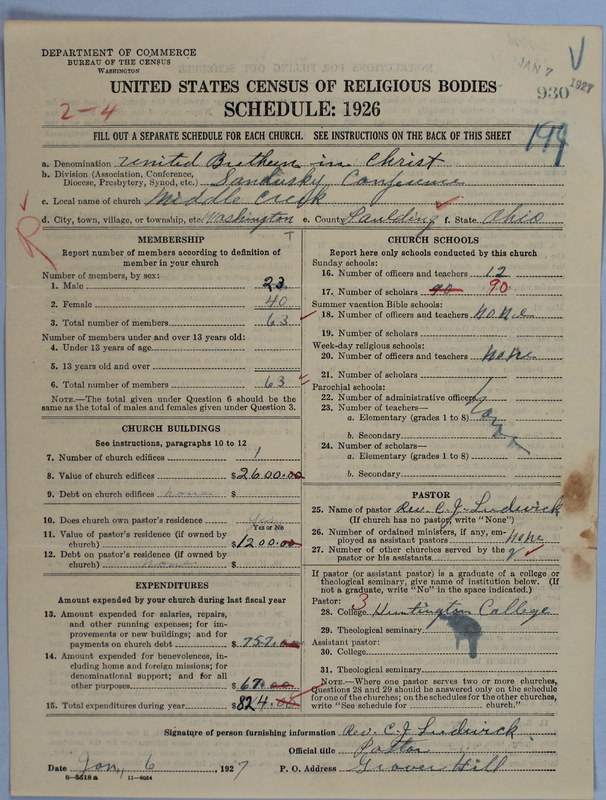 DEPARTMENT OF COMMERCE
BUREAU OF THE CENSUS
WASHINGTON
JAN 7 1927
930
UNITED STATES CENSUS OF RELIGIOUS BODIES
2-4
SCHEDULE: 1926
FILL OUT A SEPARATE SCHEDULE FOR EACH CHURCH. SEE INSTRUCTIONS ON THE BACK OF THIS SHEET
a. Denomination United Brethern in Christ
b. Division (Association, Conference,
Diocese, Presbytery, Synod, etc.) Sandusky Conference
c. Local name of church Middle Creek
d. City, town, village, or township, etc. Washington e. County Paulding f. State Ohio
MEMBERSHIP
Report number of members according to definition of
member in your church
Number of members, by sex:
1. Male 23
2. Female 40
3. Total number of members 63
Number of members under and over 13 years old:
4. Under 13 years of age
5. 13 years old and over
6. Total number of members 63
NOTE.—The total given under Question 6 should be the
same as the total of males and females given under Question 3.
CHURCH BUILDINGS
See instructions, paragraphs 10 to 12
7. Number of church edifices 1
8. Value of church edifices $2600.00
9. Debt on church edifices none $
10. Does church own pastor's residence
Yes or No
11. Value of pastor's residence (if owned by
church) $1200.00
12. Debt on pastor's residence (if owned by
church) $
EXPENDITURES
Amount expended by your church during last fiscal year
13. Amount expended for salaries, repairs,
and other running expenses; for im-
provements or new buildings; and for
payments on church debt $757.00
14. Amount expended for benevolences, in-
cluding home and foreign missions; for
denominational support; and for all
other purposes $67.00
15. Total expenditures during year $824.00
CHURCH SCHOOLS
Report here only schools conducted by this church
Sunday schools:
16. Number of officers and teachers 12
17. Number of scholars 90 90
Summer vacation Bible schools:
18. Number of officers and teachers none
19. Number of scholars
Week-day religious schools:
20. Number of officers and teachers none
21. Number of scholars
Parochial schools:
22. Number of administrative officers
23. Number of teachers—
a. Elementary (grades 1 to 8) none
b. Secondary
24. Number of scholars—
a. Elementary (grades 1 to 8)
b. Secondary
PASTOR
25. Name of pastor Rev. C. J. Ludwick
(If church has no pastor, write "None")
26. Number of ordained ministers, if any, em-
ployed as assistant pastors none
27. Number of other churches served by the
pastor or his assistants
If pastor (or assistant pastor) is a graduate of a college or
theological seminary, give name of institution below. (If
not a graduate, write "No" in the space indicated.)
Pastor: 3
28. College Huntington College
29. Theological seminary
Assistant pastor:
30. College
31. Theological seminary
NOTE.—Where one pastor serves two or more churches,
Questions 28 and 29 should be answered only on the schedule
for one of the churches; on the schedules for the other churches,
write "See schedule for church."
Signature of person furnishing information Rev. C. J. Ludwick
Official title Pastor
Date Jan, 6, 1927 P. O. Address Grover Hill
8-5518a 11-9054